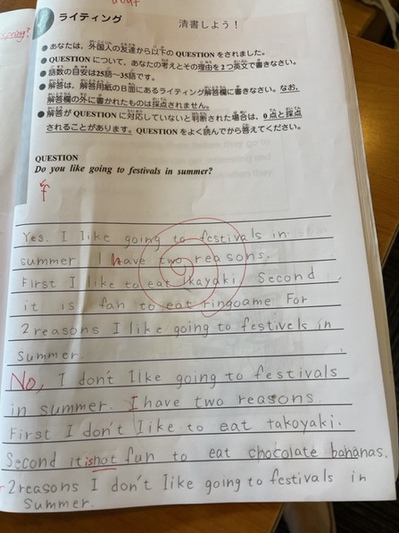 ライティング
清書しよう！
● あなたは、外国人の友達から以下の QUESTION をされました。
● QUESTION について、あなたの考えとその理由を2つ英文で書きなさい。
● 語数の目安は25語～35語です。
● 解答は、解答用紙のB面にあるライティング解答欄に書きなさい。なお、
解答欄の外に書かれたものは採点されません。
● 解答が QUESTION に対応していないと判断された場合は、0点と採点
されることがあります。QUESTION をよく読んでから答えてください。
QUESTION
Do you like going to festivals in summer?
Yes. I like going to festivals in
summer. I have two reasons.
First I like to eat Ikayaki. Second
it is fan to eat ringoame For
2 reasons I like going to festivels in
Summer.
No, I don't like going to festivals
in summer. I have two reasons
First I don't like to eat takoyaki.
Second it is not fun to eat chocolate bananas.
2 reasons I don't like going to festivals in
Summer.